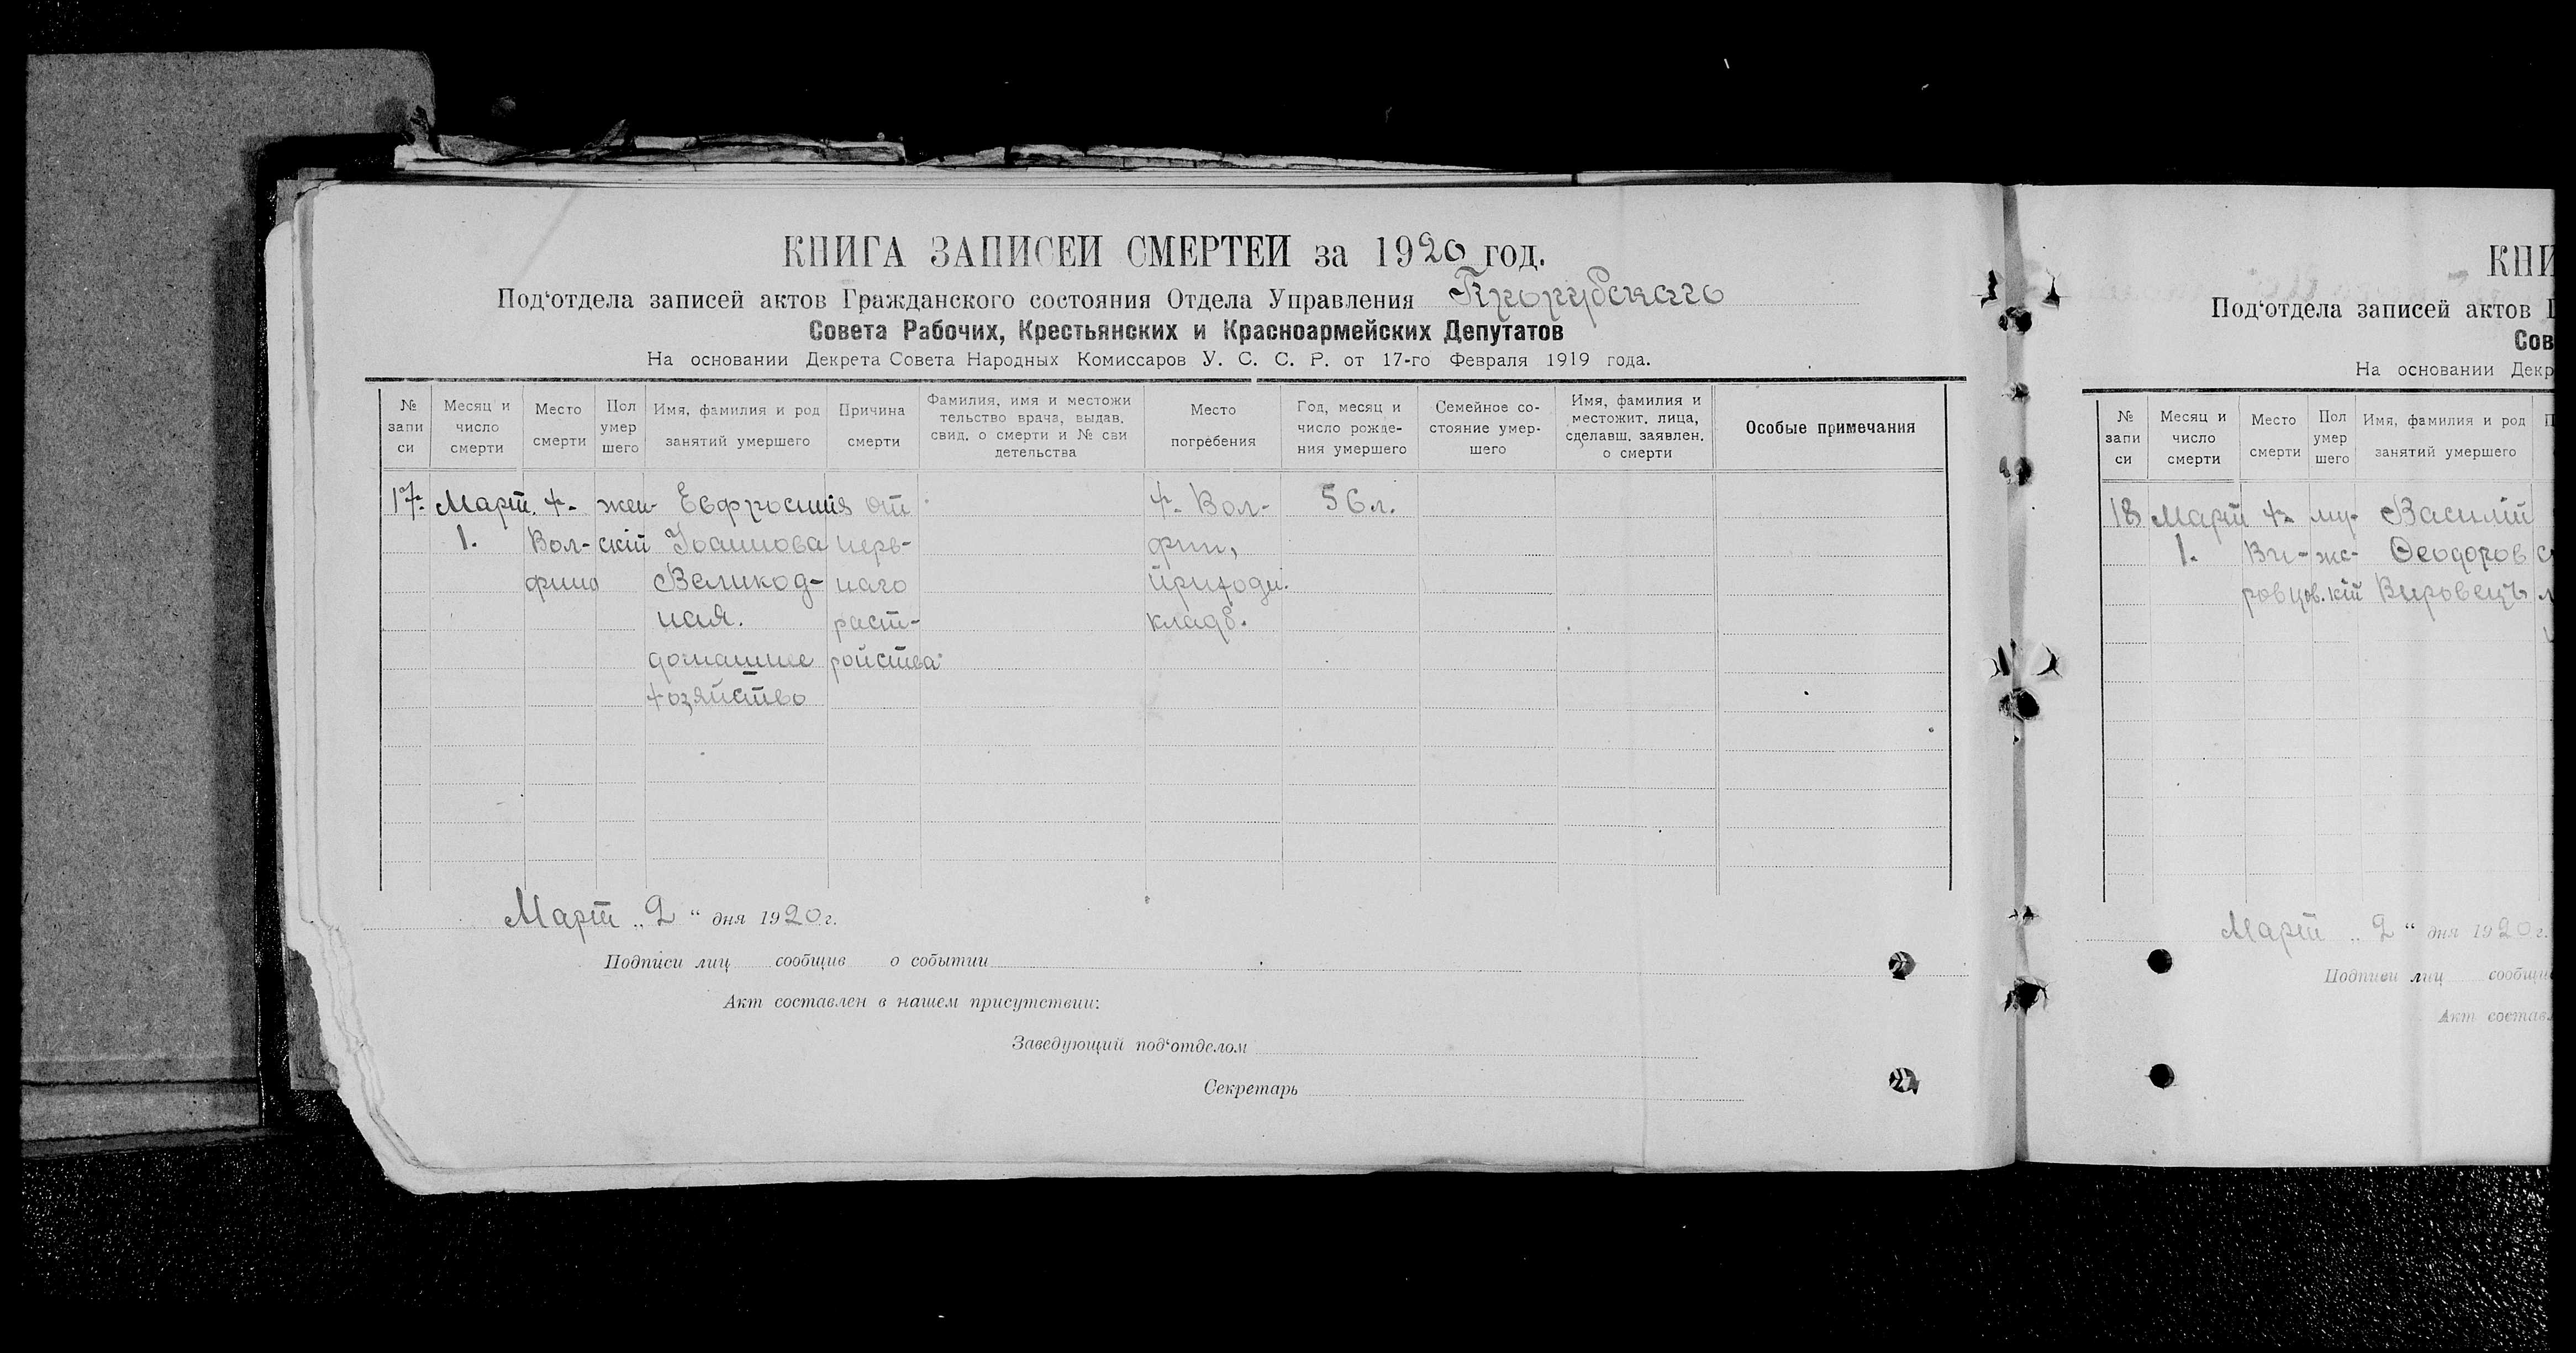 КНИГА ЗАПИСЕЙ СМЕРТЕЙ за 1920 год.
Под‘отдела записей актов Гражданского состояния Отдела Управления
Совета Рабочих, Крестьянских и Красноармейских Депутатов
На основании Декрета Совета Народных Комиссаров У. С. С. Р. от 17-го Февраля 1919 года.
№ запи си
Месяц и число смерти
Место смерти
Пол умер шего
Имя, фамилия и род занятий умершего
Причина смерти
Фамилия, имя и местожи тельство врача, выдав. свид. о смерти и № сви детельства
Место погребения
Год, месяц и число рожде- ния умершего
Семейное со- стояние умер- шего
Имя, фамилия и местожит. лица, сделавш. заявлен. о смерти
Особые примечания
17. Март. х. жен- Евфросинія от х. Вол- 56 л.
1. Вол- скій Іоаннова нерв- фин,
фино Великод- наго приходн.
ная. раст- кладб.
домашнее ройства
хозяйство
Март „2“ дня 1920 г.
Подписи лиц сообщив о событии
Акт составлен в нашем присутствии:
Заведующий под‘отделом
Секретарь
КНИ
Под‘отдела записей актов Г
Сов
На основании Декр
№ запи си
Месяц и число смерти
Место смерти
Пол умер шего
Имя, фамилия и род занятий умершего
П
18 Март х. му- Василій
1. Ви- жс- Ѳеодоров
ровцов. кій Вировецъ
Март „2“ дня 1920 г.
Подписи лиц сообщив
Акт составл